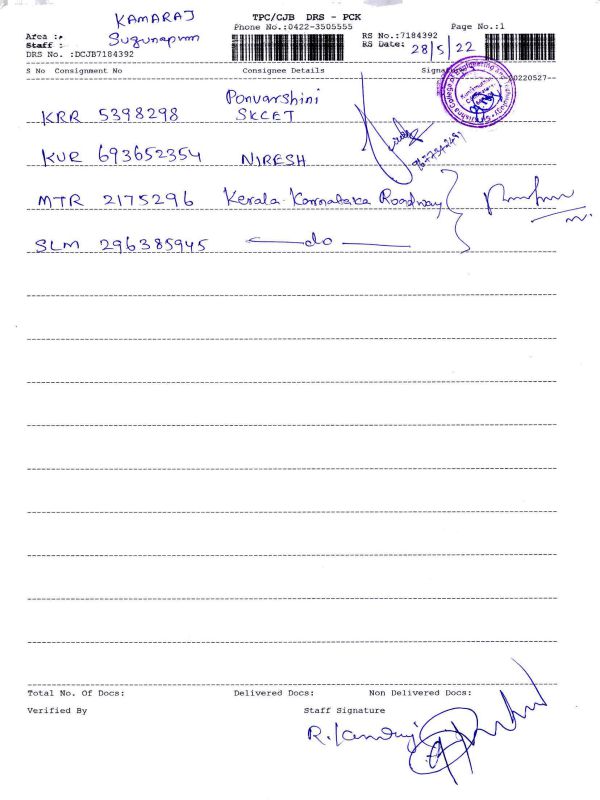 KAMARAJ
TPC/CJB DRS - PCK
Area : Sugunapuram
Phone No.:0422-3505555
Page No.:1
Staff :
RS No.:7184392
DRS No. :DCJB7184392
RS Date: 28/5/22
S No Consignment No Consignee Details Signature
20220527-
KRR 5398298 Ponvarshini
SKCET
KUR 693652354 NIRESH
MTR 2175296 Kerala-Karnataka Roadway
SLM 296385945 do
Total No. Of Docs: Delivered Docs: Non Delivered Docs:
Verified By Staff Signature